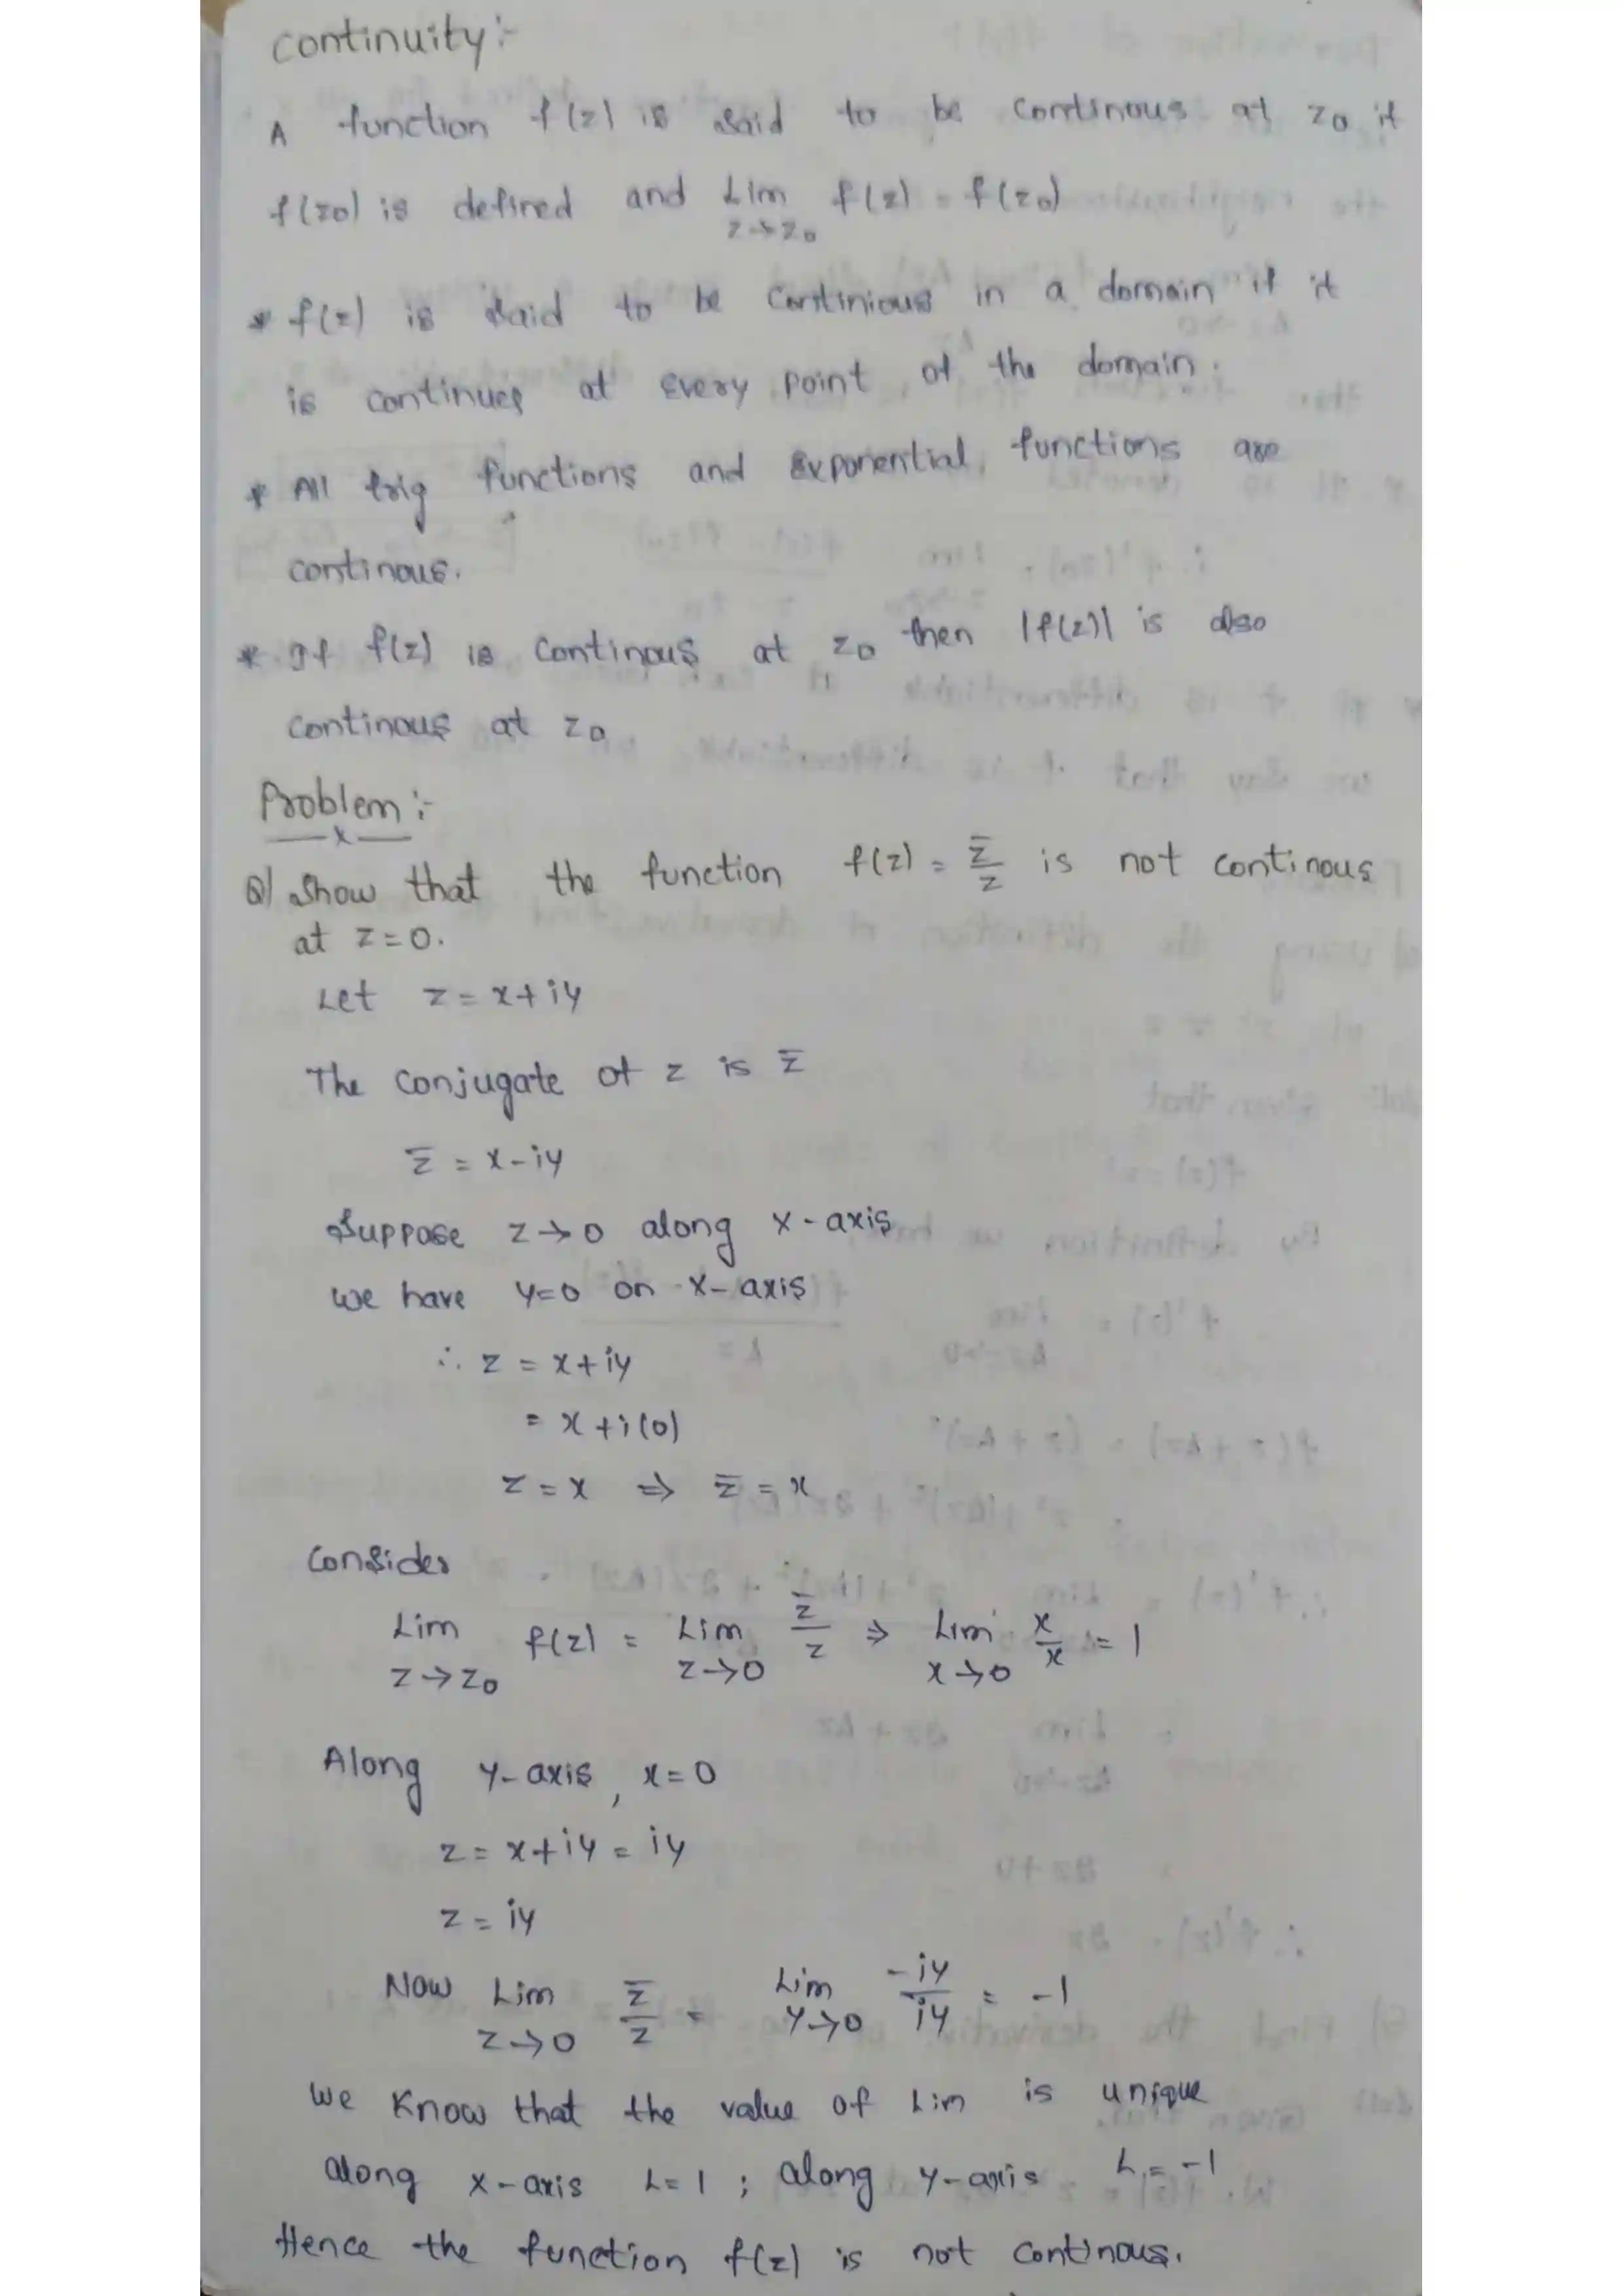 continuity :-
A function f(z) is said to be continous at z0 if
f(z0) is defined and Lim f(z) = f(z0)
z→z0
* f(z) is said to be continious in a domain if it
is continues at every point of the domain.
* All trig functions and exponential functions are
continous.
* If f(z) is continous at z0 then |f(z)| is also
continous at z0
Problem :-
Q) Show that the function f(z) = z̄/z is not continous
at z=0.
Let z = x+iy
The conjugate of z is z̄
z̄ = x-iy
Suppose z→0 along x-axis
we have y=0 on x-axis
∴ z = x+iy
= x+i(0)
z = x ⇒ z̄ = x
Consider
Lim f(z) = Lim z̄/z ⇒ Lim x/x = 1
z→z0 z→0 x→0
Along y-axis, x=0
z = x+iy = iy
z = iy
Now Lim z̄/z = Lim -iy/iy = -1
z→0 y→0
we know that the value of Lim is unique
along x-axis L=1 ; along y-axis L=-1
Hence the function f(z) is not continous.